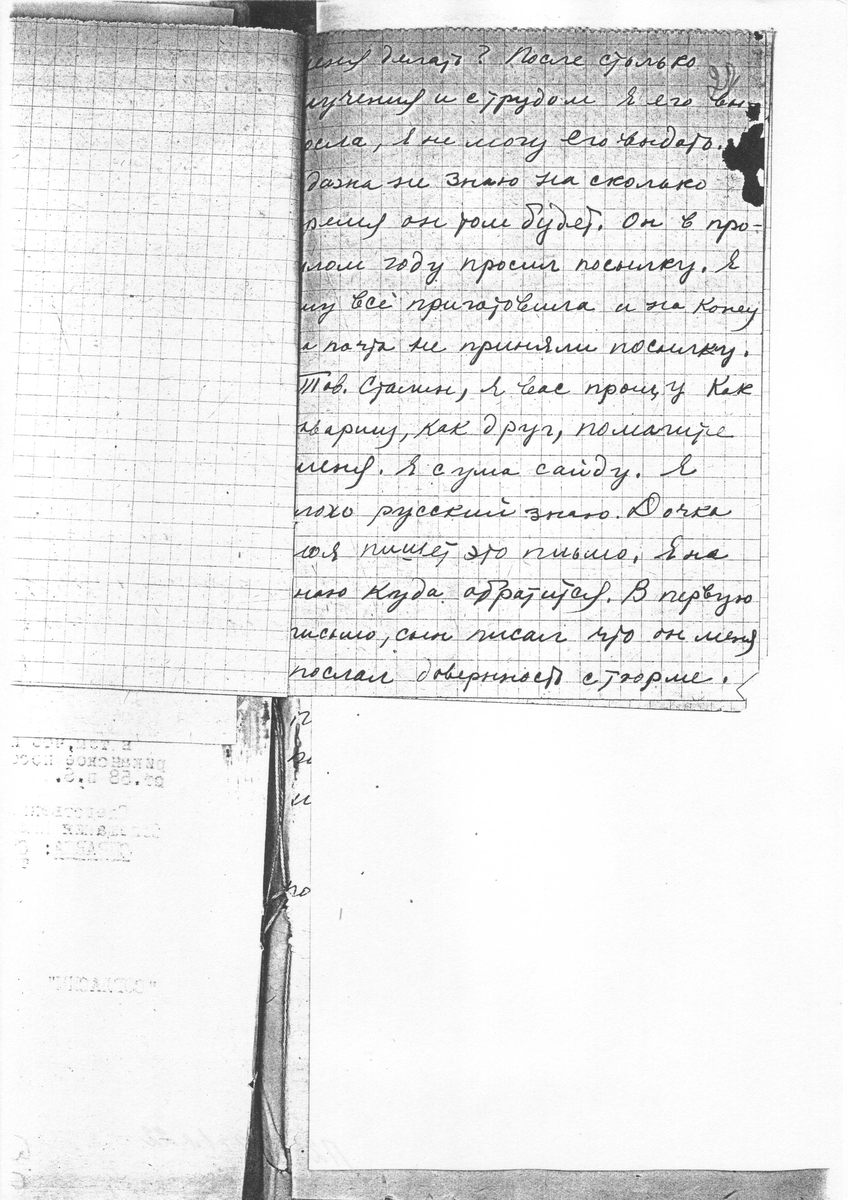 меня делать? После столько
мучения и с трудом я его вы-
росла, я не могу его видать.
дажа не знаю на сколько
время он там будет. Он в про-
шлом году просил посылку. Я
ему всё приготовила и на конец
на почта не приняли посылку.
Тов. Сталин, я вас прошу как
товарищ, как друг, помагите
меня. Я с ума сайду. Я
плохо русский знаю. Дочка
моя пишет это письмо. Я на
знаю куда обратится. В первую
письмо, сын писал что он меня
послал доверность с тюрме.
в том, что
риканское пос
ст.58 п.6.
СПРАВКА:
"СОГЛАСЕН"